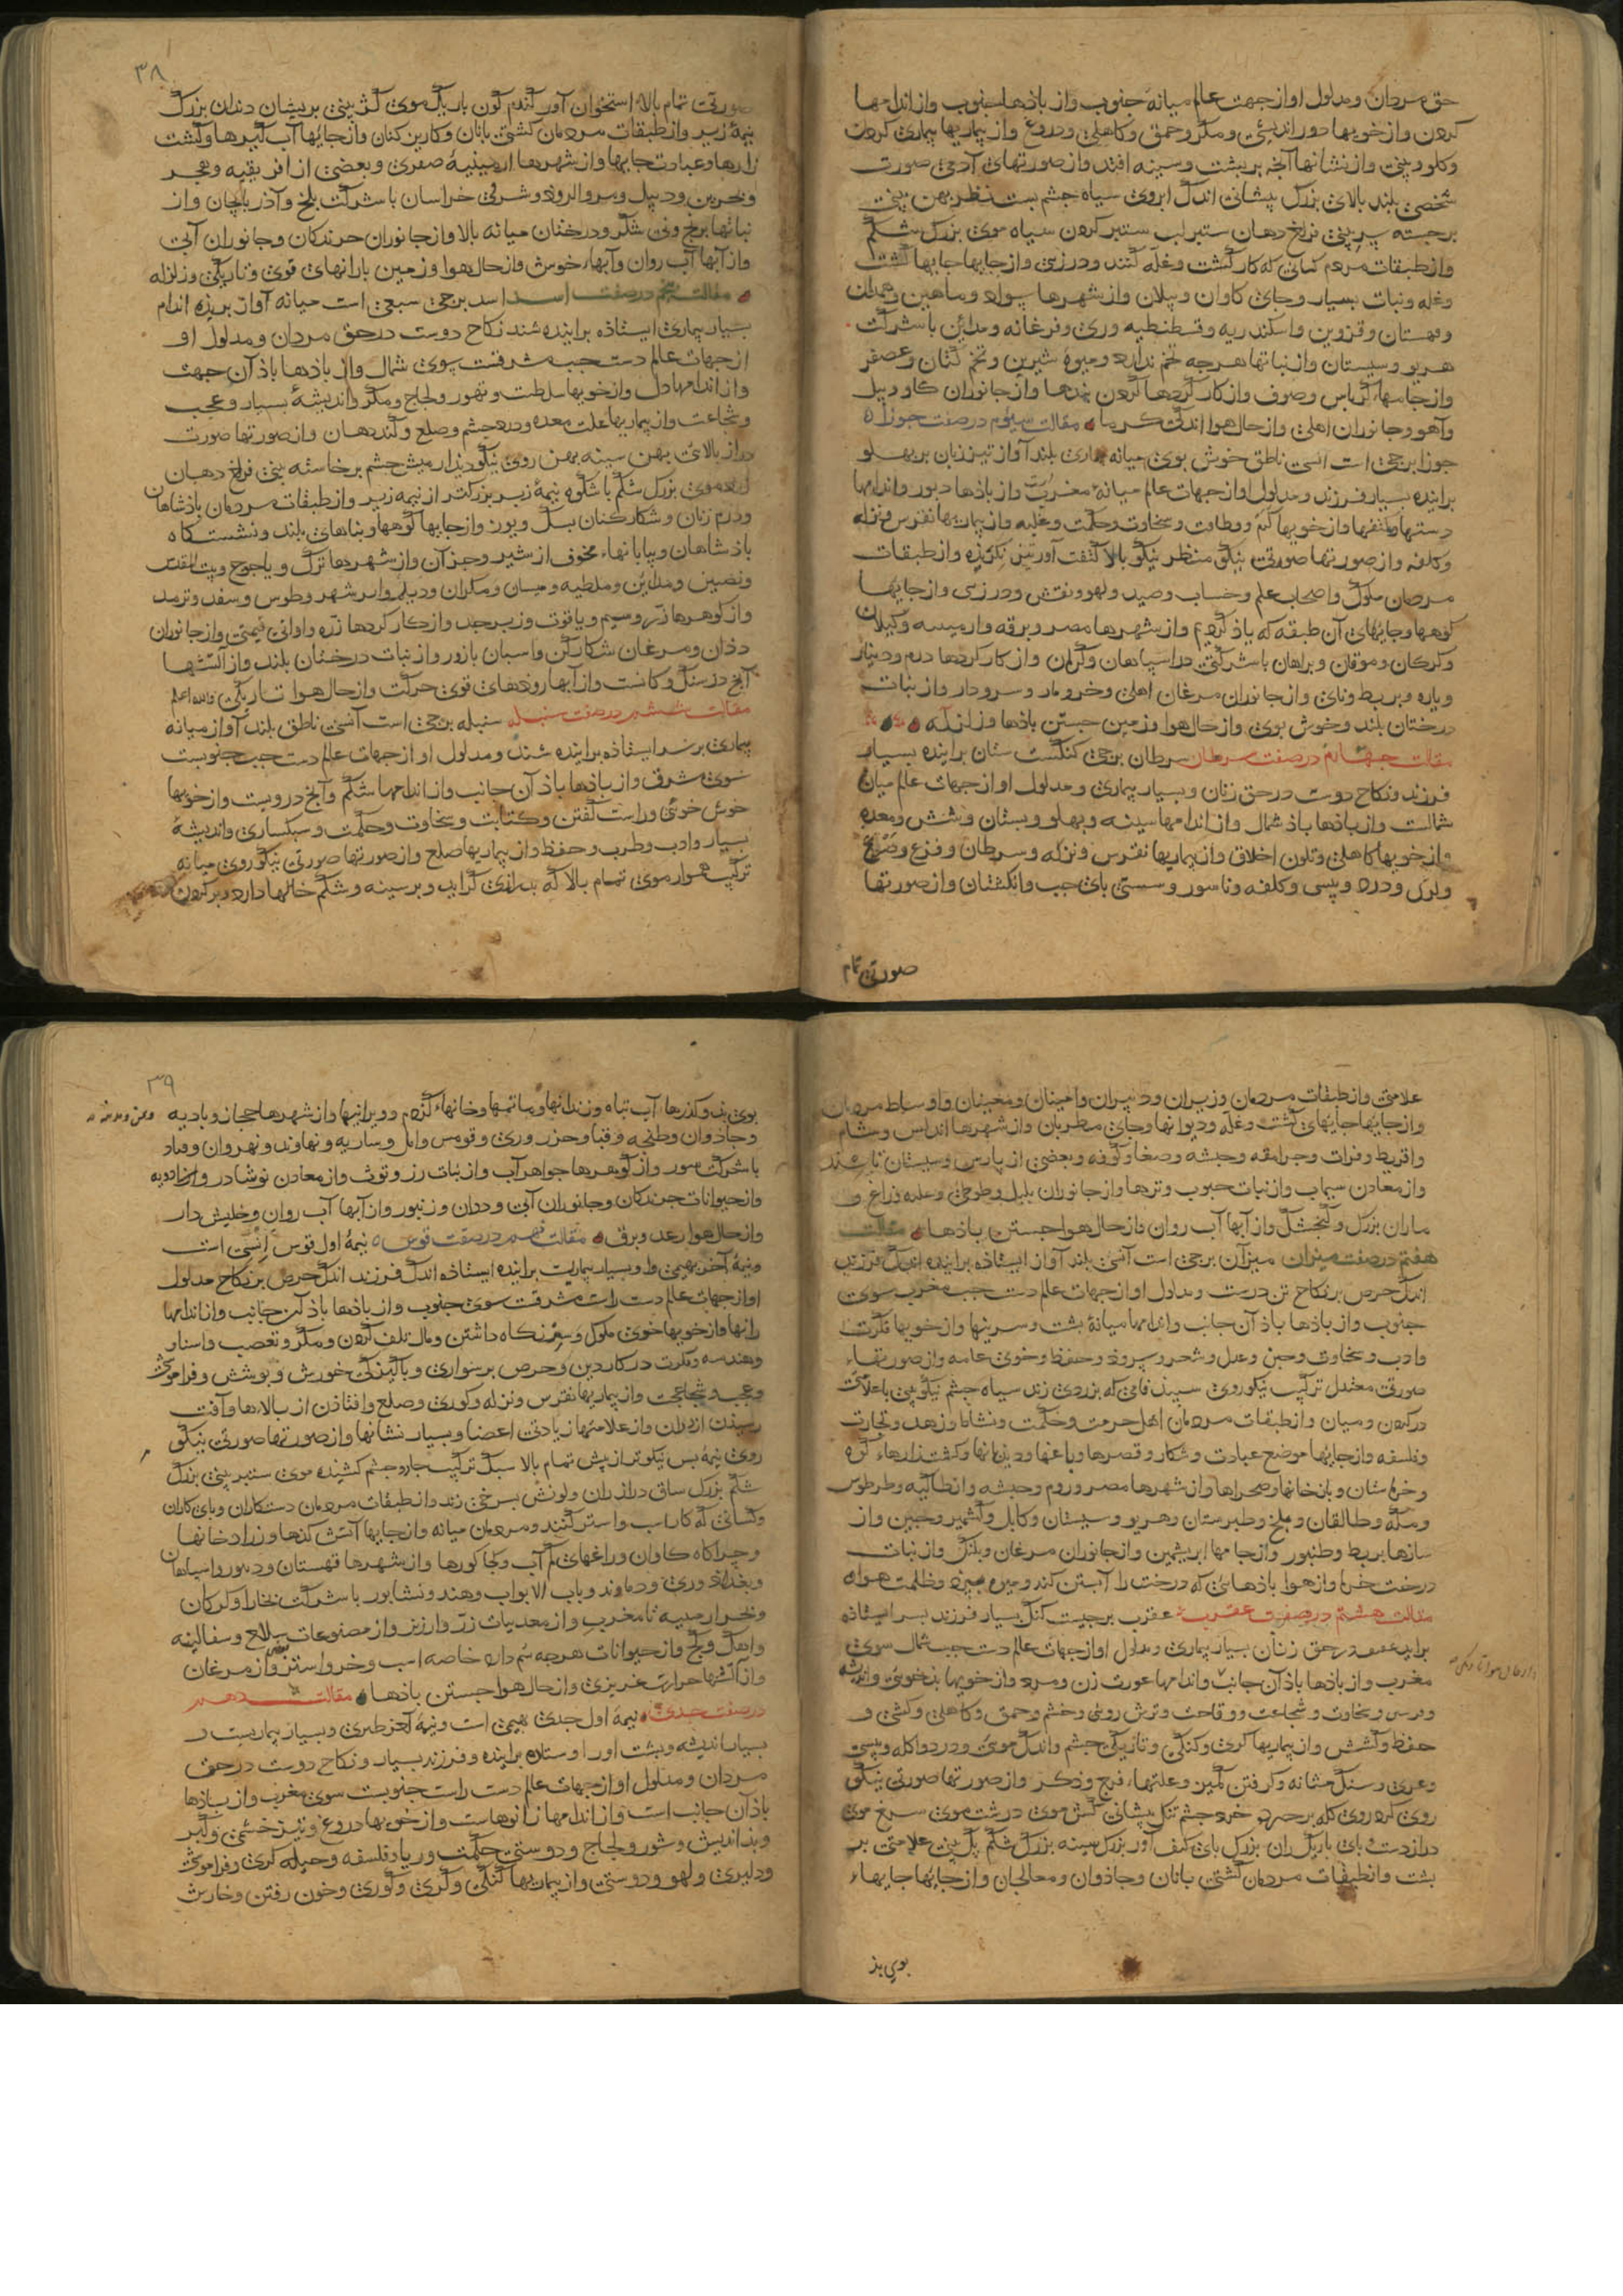 حق مردان و مدلول او از جهت عالم میانهٔ جنوب و از باذها جنوب و از اندامها
کردن و از خویها دور اندیشی و مکر و حمق و کاهلی و دروغ و از بیماریها بیماری کردن
و کلو و بینی و از نشانها آنچه بر پشت و سینه افتد و از صورتهای آدمی صورت
شخصی بلند بالای بزرک پیشانی اندک ابروی سیاه جشم بست نظر بهن بینی
برجسته بر بینی فراخ دهان ستبر لب ستبر کردن سیاه موی بزرک شکم
و از طبقات مردم کسانی که کار کشت و غله کنند و درزی و از جایها جایهای کشت
و غله و نبات بسیار و جای کاوان و پیلان و از شهرها سواد و ماهین و همدان
و قهستان و قزوین و اسکندریه و قسطنطیه و ری و فرغانه و مداین با شرکت
هریو و سیستان و از نباتها هرجه تخم ندارد و میوهٔ شیرین و تخم کتان و عصفر
و از جامها کرباس و صوف و از کار کردها کردن بندها و از جانوران کاو و بیل
و آهو و جانوران اهلی و از حال هوا اندکی کرما مقالت سیوم در صفت جوزا
جوزا برجی است انسی ناطق خوش بوی میانه بلند آواز تیز زبان بر بهلو
براینده بسیار فرزند و مدلول او از جهات عالم میانهٔ مغربست و از باذها دبور و اندامها
دستها و کتفها و از خویها کرم و وطافت و سخاوت و حکمت و غلبه و از بیماریها نقرس و نزله
و کلفه و از صورتها صورتی نیکو منظر نیکو بالا کتفت آور تیز نکرنده و از طبقات
مردمان ملوک و اصحاب علم و حساب و صید و لهو و نقش و درزی و از جایها
کوهها و جایهای آن طبقه که یاذ کردیم و از شهرها مصر و برقه و ارمینیه و کیلان
و کرکان و موقان و براهان با شرکتی در اسپاهان و کرمان و از کار کردها درم و دینار
و یاره و بربط و نای و از جانوران مرغان اهلی و خر و مار و سرودار و از نبات
درختان بلند و خوش بوی و از حال هوا و زمین جستن باذها و زلزله
مقالت جهارم در صفت سرطان سرطان برجی کنکست ستان براینده بسیار
فرزند و نکاح دوست در حق زنان و بسیار بیماری و مدلول او از جهات عالم میان
شمالست و از باذها باذ شمال و از اندامها سینه و بهلو و بستان و شش و معده
و از خویها کاهلی و تلون اخلاق و از بیماریها نقرس و نزله و سرطان و فزع و صرع
و لرک و درد و بیسی و کلفه و ناسور و سستی بای جب و انکشتان و از صورتها
صورتی تمام
۳۸
صورتی تمام بالا استخوان آور کندم کون باریک موی کژ بینی بریشان دندان بزرک
نیمهٔ زیر و از طبقات مردمان کشتی بانان و کاریزکنان و از جایها آب کیرها و کشت
زارها و عبادت جایها و از شهرها ارمینیهٔ صغری و بعضی از افریقیه و هجر
و بحرین و دیبل و مرو الروذ و شرقی خراسان با شرکت بلخ و آذربایجان و از
نباتها برنج و نی شکر و درختان میانه بالا و از جانوران خرندکان و جانوران آبی
و از آبها آب روان و آبهای خوش و از حال هوا و زمین بارانهای قوی و تاریکی و زلزله
مقالت بنجم در صفت اسد اسد برجی سبعی است میانه آواز بریذه اندام
بسیار بیماری ایستاذه براینده شند نکاح دوست در حق مردان و مدلول او
از جهات عالم دست جب مشرقست سوی شمال و از باذها باذ آن جهت
و از اندامها دل و از خویها سلطنت و تهور و لجاج و مکر و اندیشهٔ بسیار و عجب
و شجاعت و از بیماریها علت معده و درد جشم و صلع و کند دهان و از صورتها صورت
دراز بالای بهن سینه بهن روی نیکو دیدار میش جشم برخاسته بینی فراخ دهان
موی بزرک شکم با شکوه نیمهٔ زبر بزرکتر از نیمه زیر و از طبقات مردمان باذشاهان
و درم زنان و شکارکنان بسک و یوز و از جایها کوهها و بناهای بلند و نشستکاه
باذشاهان و بیابانهاء مخوف از شیر و جز آن و از شهرها ترک و یاجوج و بیت المقدس
و نصیبین و مداین و ملطیه و میسان و مکران و دیلم و ابرشهر و طوس و سغد و ترمذ
و از کوهرها زر و سیم و یاقوت و زبرجد و از کار کردها زره و اوانی قیمتی و از جانوران
دذان و مرغان شکارکن و اسبان با زور و از نبات درختان بلند و از آتشها
آنج در سنک و کانست و از آبها روذهای قوی حرکت و از حال هوا تاریکی والله اعلم
مقالت ششم در صفت سنبله سنبله برجی است انسی ناطق بلند آواز میانه
بیماری بر سر ایستاذه براینده شند و مدلول او از جهات عالم دست جب جنوبست
سوی مشرق و از باذها باذ آن جانب و از اندامها شکم و آنج دروست و از خویها
خوش خوئی و راست کفتن و کتابت و سخاوت و حکمت و سبکساری و اندیشهٔ
بسیار و ادب و طرب و حفظ و از بیماریها صلع و از صورتها صورتی نیکو روی میانه
ترکیب هموار موی تمام بالا که بدرازی کراید و بر سینه و شکم خالها دارد و بر کردن
علامتی و از طبقات مردمان وزیران و دبیران و امینان و مغنیان و اوساط مردمان
و از جایها جایهای کشت و غله و دیوانها و جای مطربان و از شهرها اندلس و شام
و اقریط و فرات و جرامقه و حبشه و صنعا و کوفه و بعضی از پارس و سیستان تا سند
و از معادن سیماب و از نبات حبوب و ترها و از جانوران بلبل و طوطی و عکه و زاغ و
ماران بزرک و کنجشک و از آبها آب روان و از حال هوا جستن باذها مقالت
هفتم در صفت میزان میزان برجی است انسی بلند آواز ایستاذه براینده اندک فرزند
اندک حرص بر نکاح تن درست و مدلول او از جهات عالم دست جب مغرب سوی
جنوب و از باذها باذ آن جانب و اندامها میانهٔ بشت و سرینها و از خویها فکرت
و ادب و سخاوت و جبن و عدل و شعر و سرود و حفظ و خوی عامه و از صورتهاء
صورتی معتدل ترکیب نیکو روی سبید فامی که بزردی زند سیاه جشم نیکو بینی با علامت
در کردن و میان و از طبقات مردمان اهل حرمت و حکمت و نشاط و زهد و تجارت
و فلسفه و از جایها موضع عبادت و شکار و قصرها و باغها و دیدبانها و کشتزارهاء کوه
و خرماستان و بازخانها و صحراها و از شهرها مصر و روم و حبشه و انطاکیه و طرطوس
و مکه و طالقان و بلخ و طبرستان و هریو و سیستان و کابل و کشمیر و چین و از
سازها بربط و طنبور و از جامها ابریشمین و از جانوران مرغان و بلنک و از نبات
درخت خرما و از هوا باذهائی که درخت را آبستن کند و میوه ببرد و ظلمت هوا
مقالت هشتم در صفت عقرب عقرب برجیست کنک بسیار فرزند بسر ایستاذه
براینده عفیف در حق زنان بسیار بیماری و مدلول او از جهات عالم دست جب شمال سوی
مغرب و از باذها باذ آن جانب و اندامها عورت زن و مرد و از خویها بذخوئی و اندیشه
و ترس و سخاوت و شجاعت و وقاحت و ترش روئی و خشم و حمق و کاهلی و کشی و
حفظ و کشش و از بیماریها کری و کنکی و تاریکی جشم و اندک موئی و درد و آکله و بیسی
و عرق و سنک مثانه و کرفتن کمیز و علتهاء فرج و ذکر و از صورتها صورتی نیکو
روی کرد روی کله بر جبهه خرد جشم تنک پیشانی کش موی درشت موی سرخ موی
دراز دست و پای باریک ران بزرک بای کتف آور بزرک سینه بزرک شکم بل بینی علامتی بر
بشت و از طبقات مردمان کشتی بانان و جاذوان و معالجان و از جایها جایهاء
بوی بد
۳۹
بوی بد و کذرها آب تباه و زندانها و ماتمها و خانهاء کژدم و ویرانیها و از شهرها حجاز و بادیه
و جاذوان و طنجه و قبا و خزر و ری و قومس و آمل و ساریه و نهاوند و نهروان و
با شرکت سور و از کوهرها جواهر آب و از نبات رز و توث و از معادن نوشادر و
و از حیوانات جرندکان و جانوران آبی و ددان و زنبور و از آبها آب روان و خلیش دار
و از حال هوا رعد و برق مقالت نهم در صفت قوس نیمهٔ اول قوس انسی است
و نیمهٔ آخر بهیمی و او بسیار بیماریست براینده ایستاذه اندک فرزند اندک حرص بر نکاح مدلول
او از جهات عالم دست راست مشرقست سوی جنوب و از باذها باذ آن جانب و از اندامها
رانها و از خویها خوی ملوک و سر نکاه داشتن و مال تلف کردن و مکر و تعصب و اسنار
و هندسه و فکرت در کار دین و حرص بر سواری و پاکیزکی خورش و پوشش و فراموشی
و عجب و شجاعت و از بیماریها نقرس و نزله و کوری و صلع و افتاذن از بالاها و آفت
رسیدن از ددان و از علامتها زیادتی اعضا و بسیار نشانها و از صورتها صورتی نیکو
روی نیمهٔ پس نیکوتر از پیش تمام بالا سبک ترکیب جشم کشیده موی ستبر بینی بزرک
شکم بزرک ساق دراز ران و لونش بسرخی زند و از طبقات مردمان دستکاران و بای کاران
و کسانی که کار اسب و استر کنند و مردمان میانه و از جایها آتش کذها و زرادخانها
و جراکاه کاوان و راغهای کم آب و جاکورها و از شهرها قهستان و دینور و اسپاهان
و بغداد و ری و دماوند و باب الابواب و هند و نشابور با شرکت بخارا و کرکان
و ارمینیه تا مغرب و از معدنیات زر و ارزیز و از مصنوعات سلاح و سفالینه
و آهک و کج و از حیوانات هرجه سم دارد خاصه اسب و خر و استر و از مرغان
و از آتشها حرارت غریزی و از حال هوا جستن باذها مقالت دهم
در صفت جدی نیمهٔ اول جدی بهیمی است و نیمهٔ آخر طیری و بسیار بیماریست و
بسیار اندیشه و بشت او را و ستان براینده و فرزند بسیار و نکاح دوست در حق
مردان و مدلول او از جهات عالم دست راست جنوبست سوی مغرب و از باذها
باذ آن جانب است و از اندامها زانوهاست و از خویها دروغ و تیز خشمی و کبر
و بذ اندیش و شور و لجاج و دوستی حکمت و ریا و فلسفه و حیله کری و فراموشی
و دلیری و لهو و دوستی و از بیماریها کنکی و کری و کوری و خون رفتن و خارش